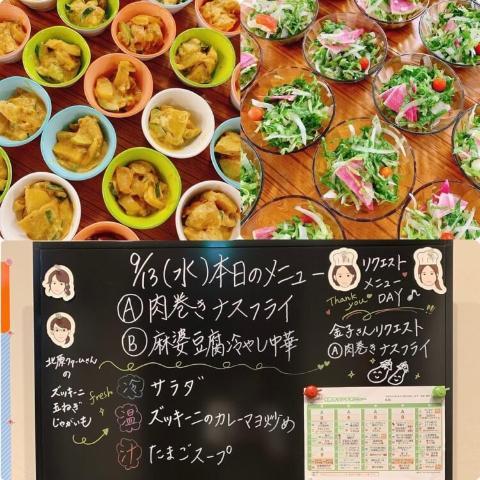 9/13(水)本日のメニュー
Ⓐ肉巻きナスフライ
Ⓑ麻婆豆腐冷やし中華
リクエスト
メニュー
DAY♪
Thank you
金子さんリクエスト
Ⓐ肉巻きナスフライ
北原ファームさん
の
ズッキーニ
玉ねぎ
じゃがいも
fresh
冷 サラダ
温 ズッキーニのカレーマヨ炒め
汁 たまごスープ